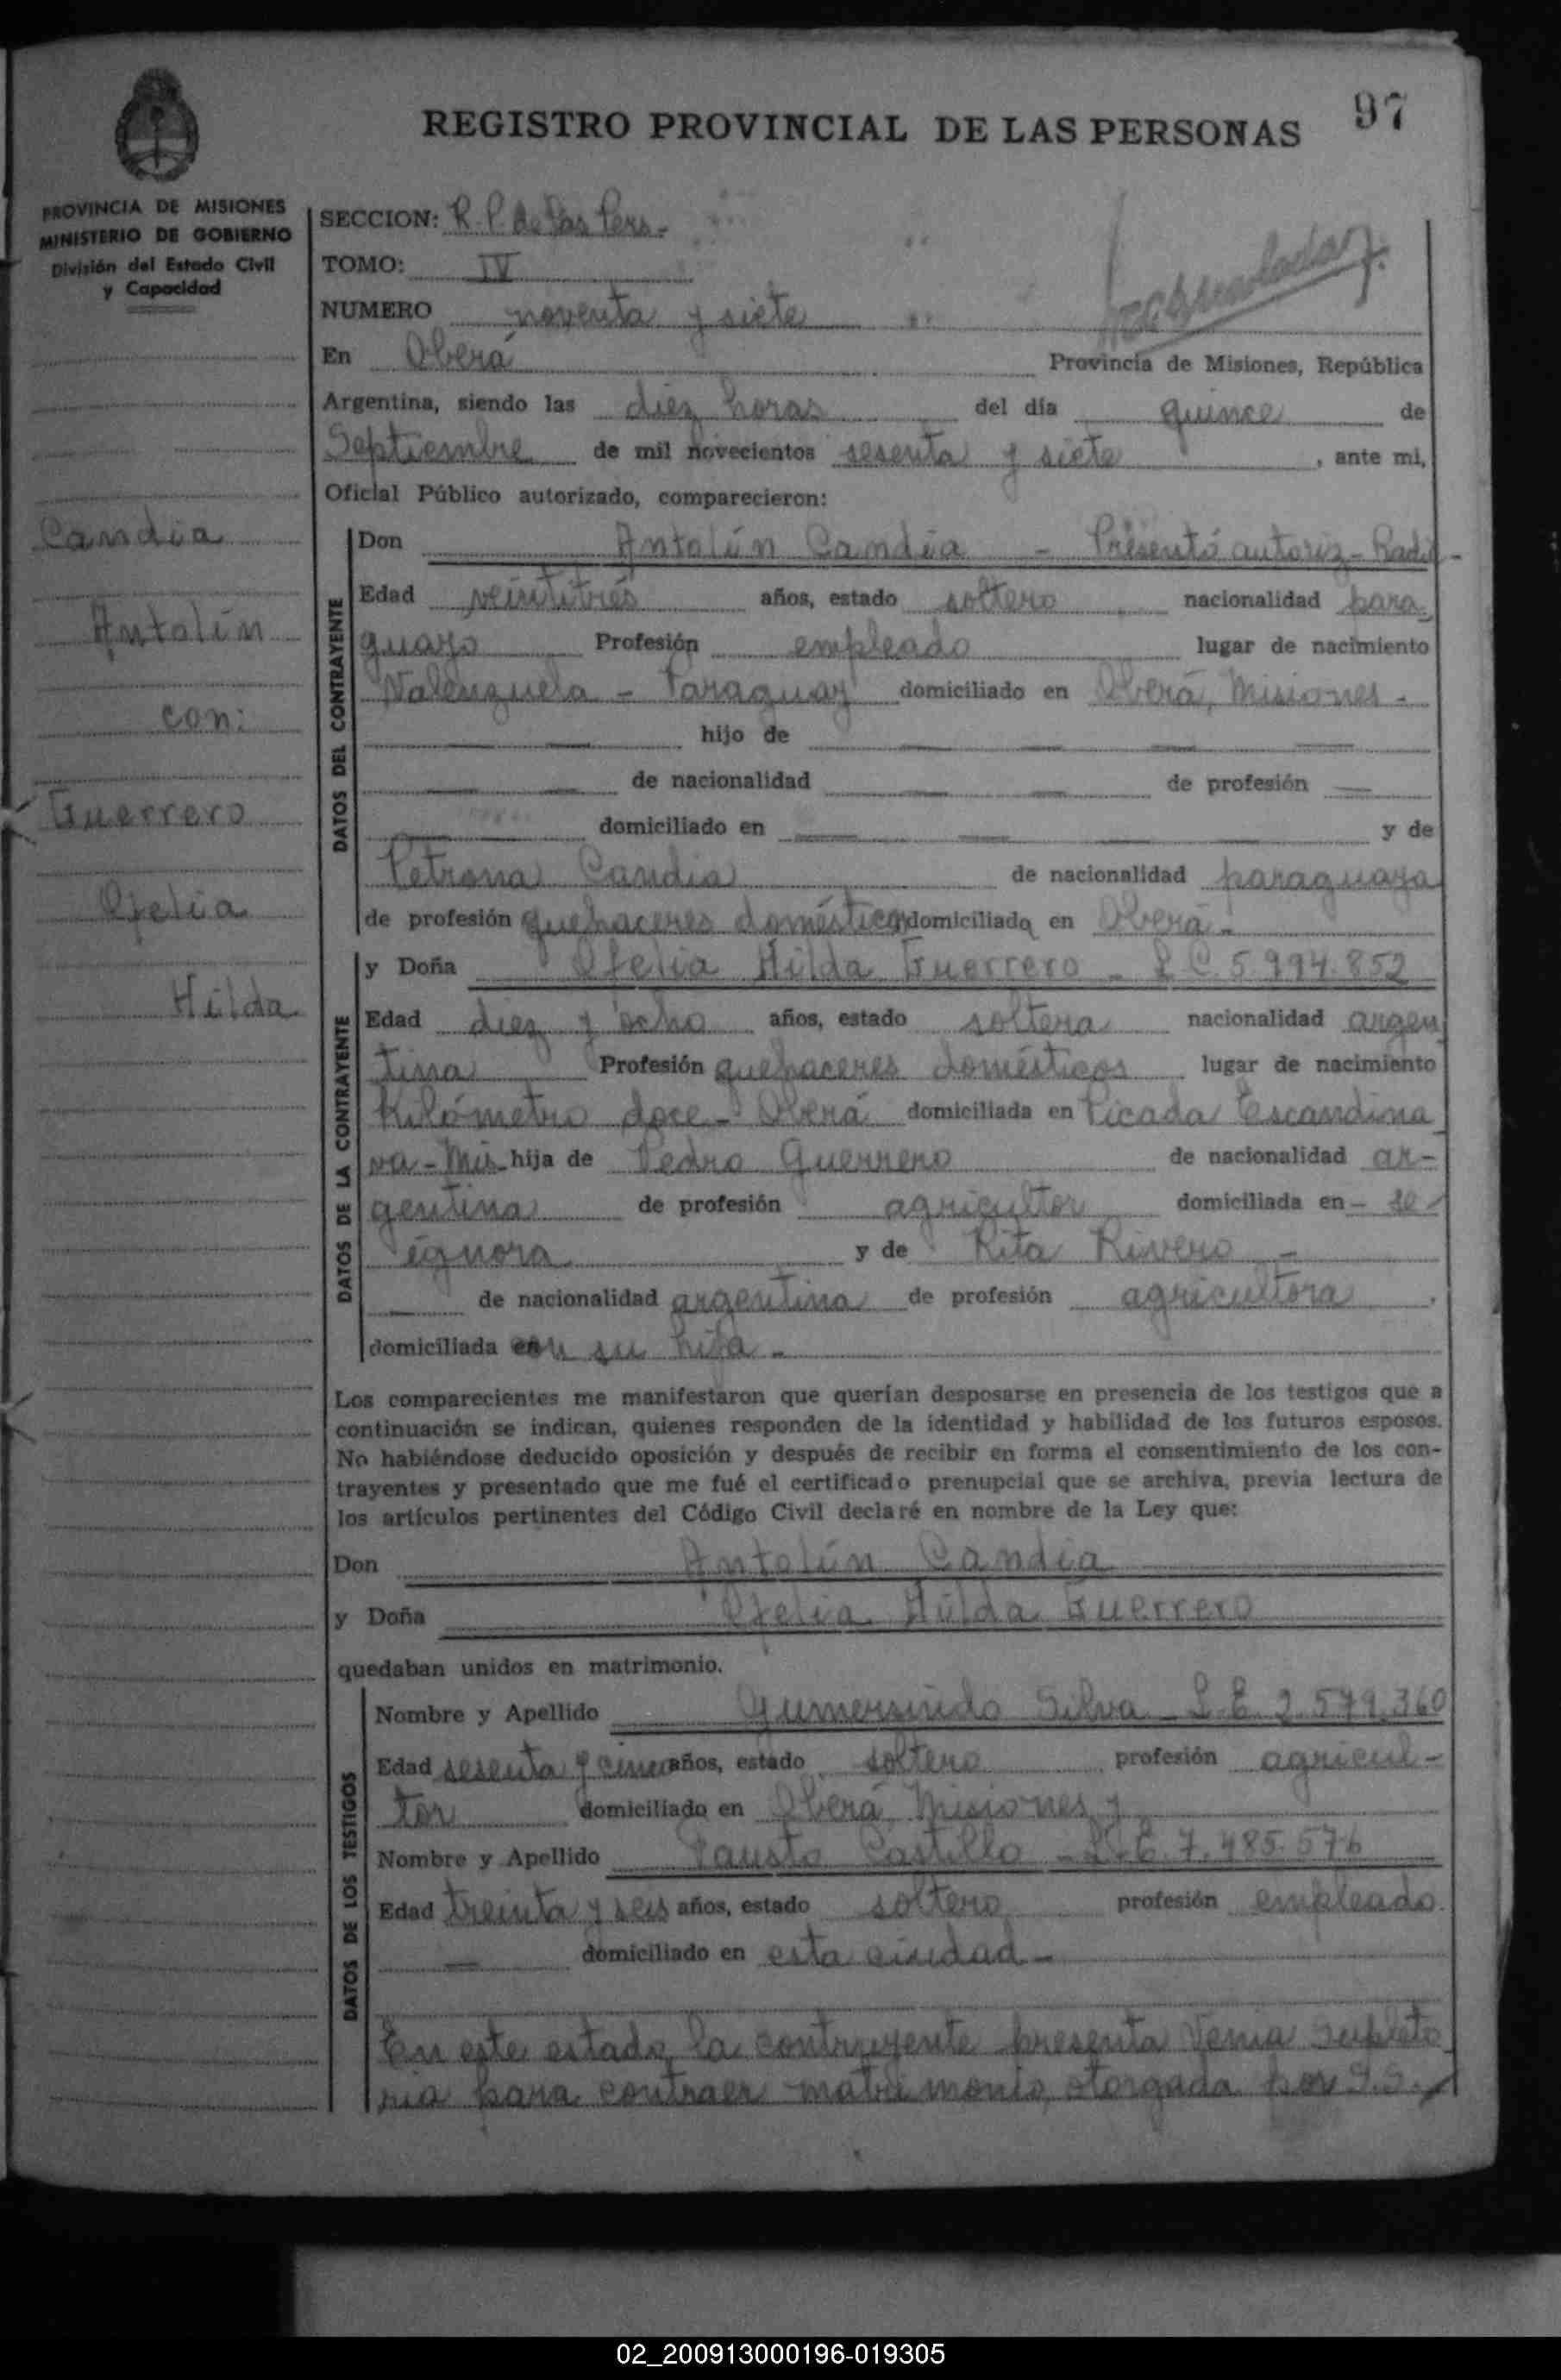 97
REGISTRO PROVINCIAL DE LAS PERSONAS
PROVINCIA DE MISIONES
MINISTERIO DE GOBIERNO
División del Estado Civil
y Capacidad
Candia
Antolín
con:
Guerrero
Ofelia
Hilda
SECCION: R. P. de las Pers.-
TOMO: IV
NUMERO noventa y siete
En Oberá Provincia de Misiones, República
Argentina, siendo las diez horas del día quince de
Septiembre de mil novecientos sesenta y siete, ante mi,
Oficial Público autorizado, comparecieron:
DATOS DEL CONTRAYENTE
Don Antolín Candia - Presentó autoriz- Radic-
Edad veintitrés años, estado soltero nacionalidad para
guayo Profesión empleado lugar de nacimiento
Valenzuela - Paraguay domiciliado en Oberá, Misiones -
hijo de
de nacionalidad de profesión
domiciliado en y de
Petrona Candia de nacionalidad paraguaya
de profesión quehaceres domésticos domiciliada en Oberá.-
DATOS DE LA CONTRAYENTE
y Doña Ofelia Hilda Guerrero - L C. 5.994.852
Edad diez y ocho años, estado soltera nacionalidad argen
tina Profesión quehaceres domésticos lugar de nacimiento
Kilómetro doce - Oberá domiciliada en Picada Escandina
va - Mis- hija de Pedro Guerrero de nacionalidad ar-
gentina de profesión agricultor domiciliada en - se
ignora y de Rita Rivero -
de nacionalidad argentina de profesión agricultora,
domiciliada con su hija -
Los comparecientes me manifestaron que querían desposarse en presencia de los testigos que a
continuación se indican, quienes responden de la identidad y habilidad de los futuros esposos.
No habiéndose deducido oposición y después de recibir en forma el consentimiento de los con-
trayentes y presentado que me fué el certificado prenupcial que se archiva, previa lectura de
los artículos pertinentes del Código Civil declaré en nombre de la Ley que:
Don Antolín Candia
y Doña Ofelia Hilda Guerrero
quedaban unidos en matrimonio.
DATOS DE LOS TESTIGOS
Nombre y Apellido Gumersindo Silva - L. E. 2.579.360
Edad sesenta y cinco años, estado soltero profesión agricul-
tor domiciliado en Oberá, Misiones y
Nombre y Apellido Fausto Castillo - L. E. 7.485.576
Edad treinta y seis años, estado soltero profesión empleado
domiciliado en esta ciudad -
En este estado, la contrayente presenta Venia Supleto
ria para contraer matrimonio, otorgada por S.S.
02_200913000196-019305